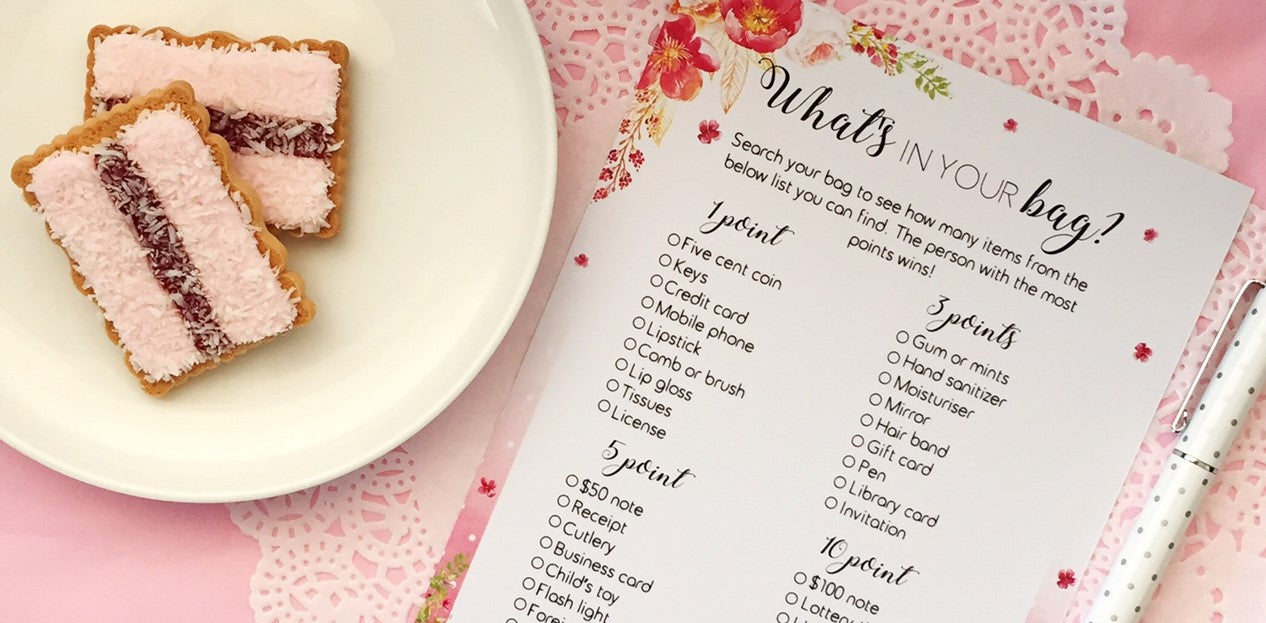 What's IN YOUR bag?
Search your bag to see how many items from the
below list you can find. The person with the most
points wins!
1 point
Five cent coin
Keys
Credit card
Mobile phone
Lipstick
Comb or brush
Lip gloss
Tissues
License
5 point
$50 note
Receipt
Cutlery
Business card
Child's toy
Flash light
3 points
Gum or mints
Hand sanitizer
Moisturiser
Mirror
Hair band
Gift card
Pen
Library card
Invitation
10 point
$100 note
Lottery